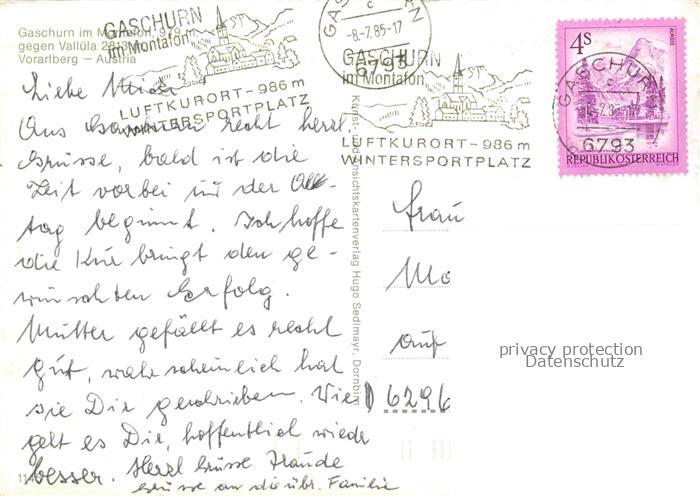 Gaschurn im Montafon, 979 m
gegen Vallüla 2813
Vorarlberg – Austria
GASCHURN
im Montafon
LUFTKURORT - 986 m
WINTERSPORTPLATZ
-8.-7.85-17
6793
GASCHURN
im Montafon
LUFTKURORT - 986 m
WINTERSPORTPLATZ
4S
ALMSEE
REPUBLIK ÖSTERREICH
GASCHUR
6793
Liebe
Aus Gaschurn recht herzl.
Grüsse, bald ist die
Zeit vorbei und der All-
tag beginnt. Ich hoffe
die Kur bringt den ge-
wünschten Erfolg.
Mutter gefällt es recht
gut, wahrscheinlich hat
sie Dir geschrieben. Wie
geht es Dir, hoffentlich wieder
besser. Herzl Grüsse Traude
Grüsse an die übr. Familie
Kunst- und Ansichtskartenverlag Hugo Sedlmayr, Dornbirn
Frau
Mo
auf
D 6296
privacy protection
Datenschutz